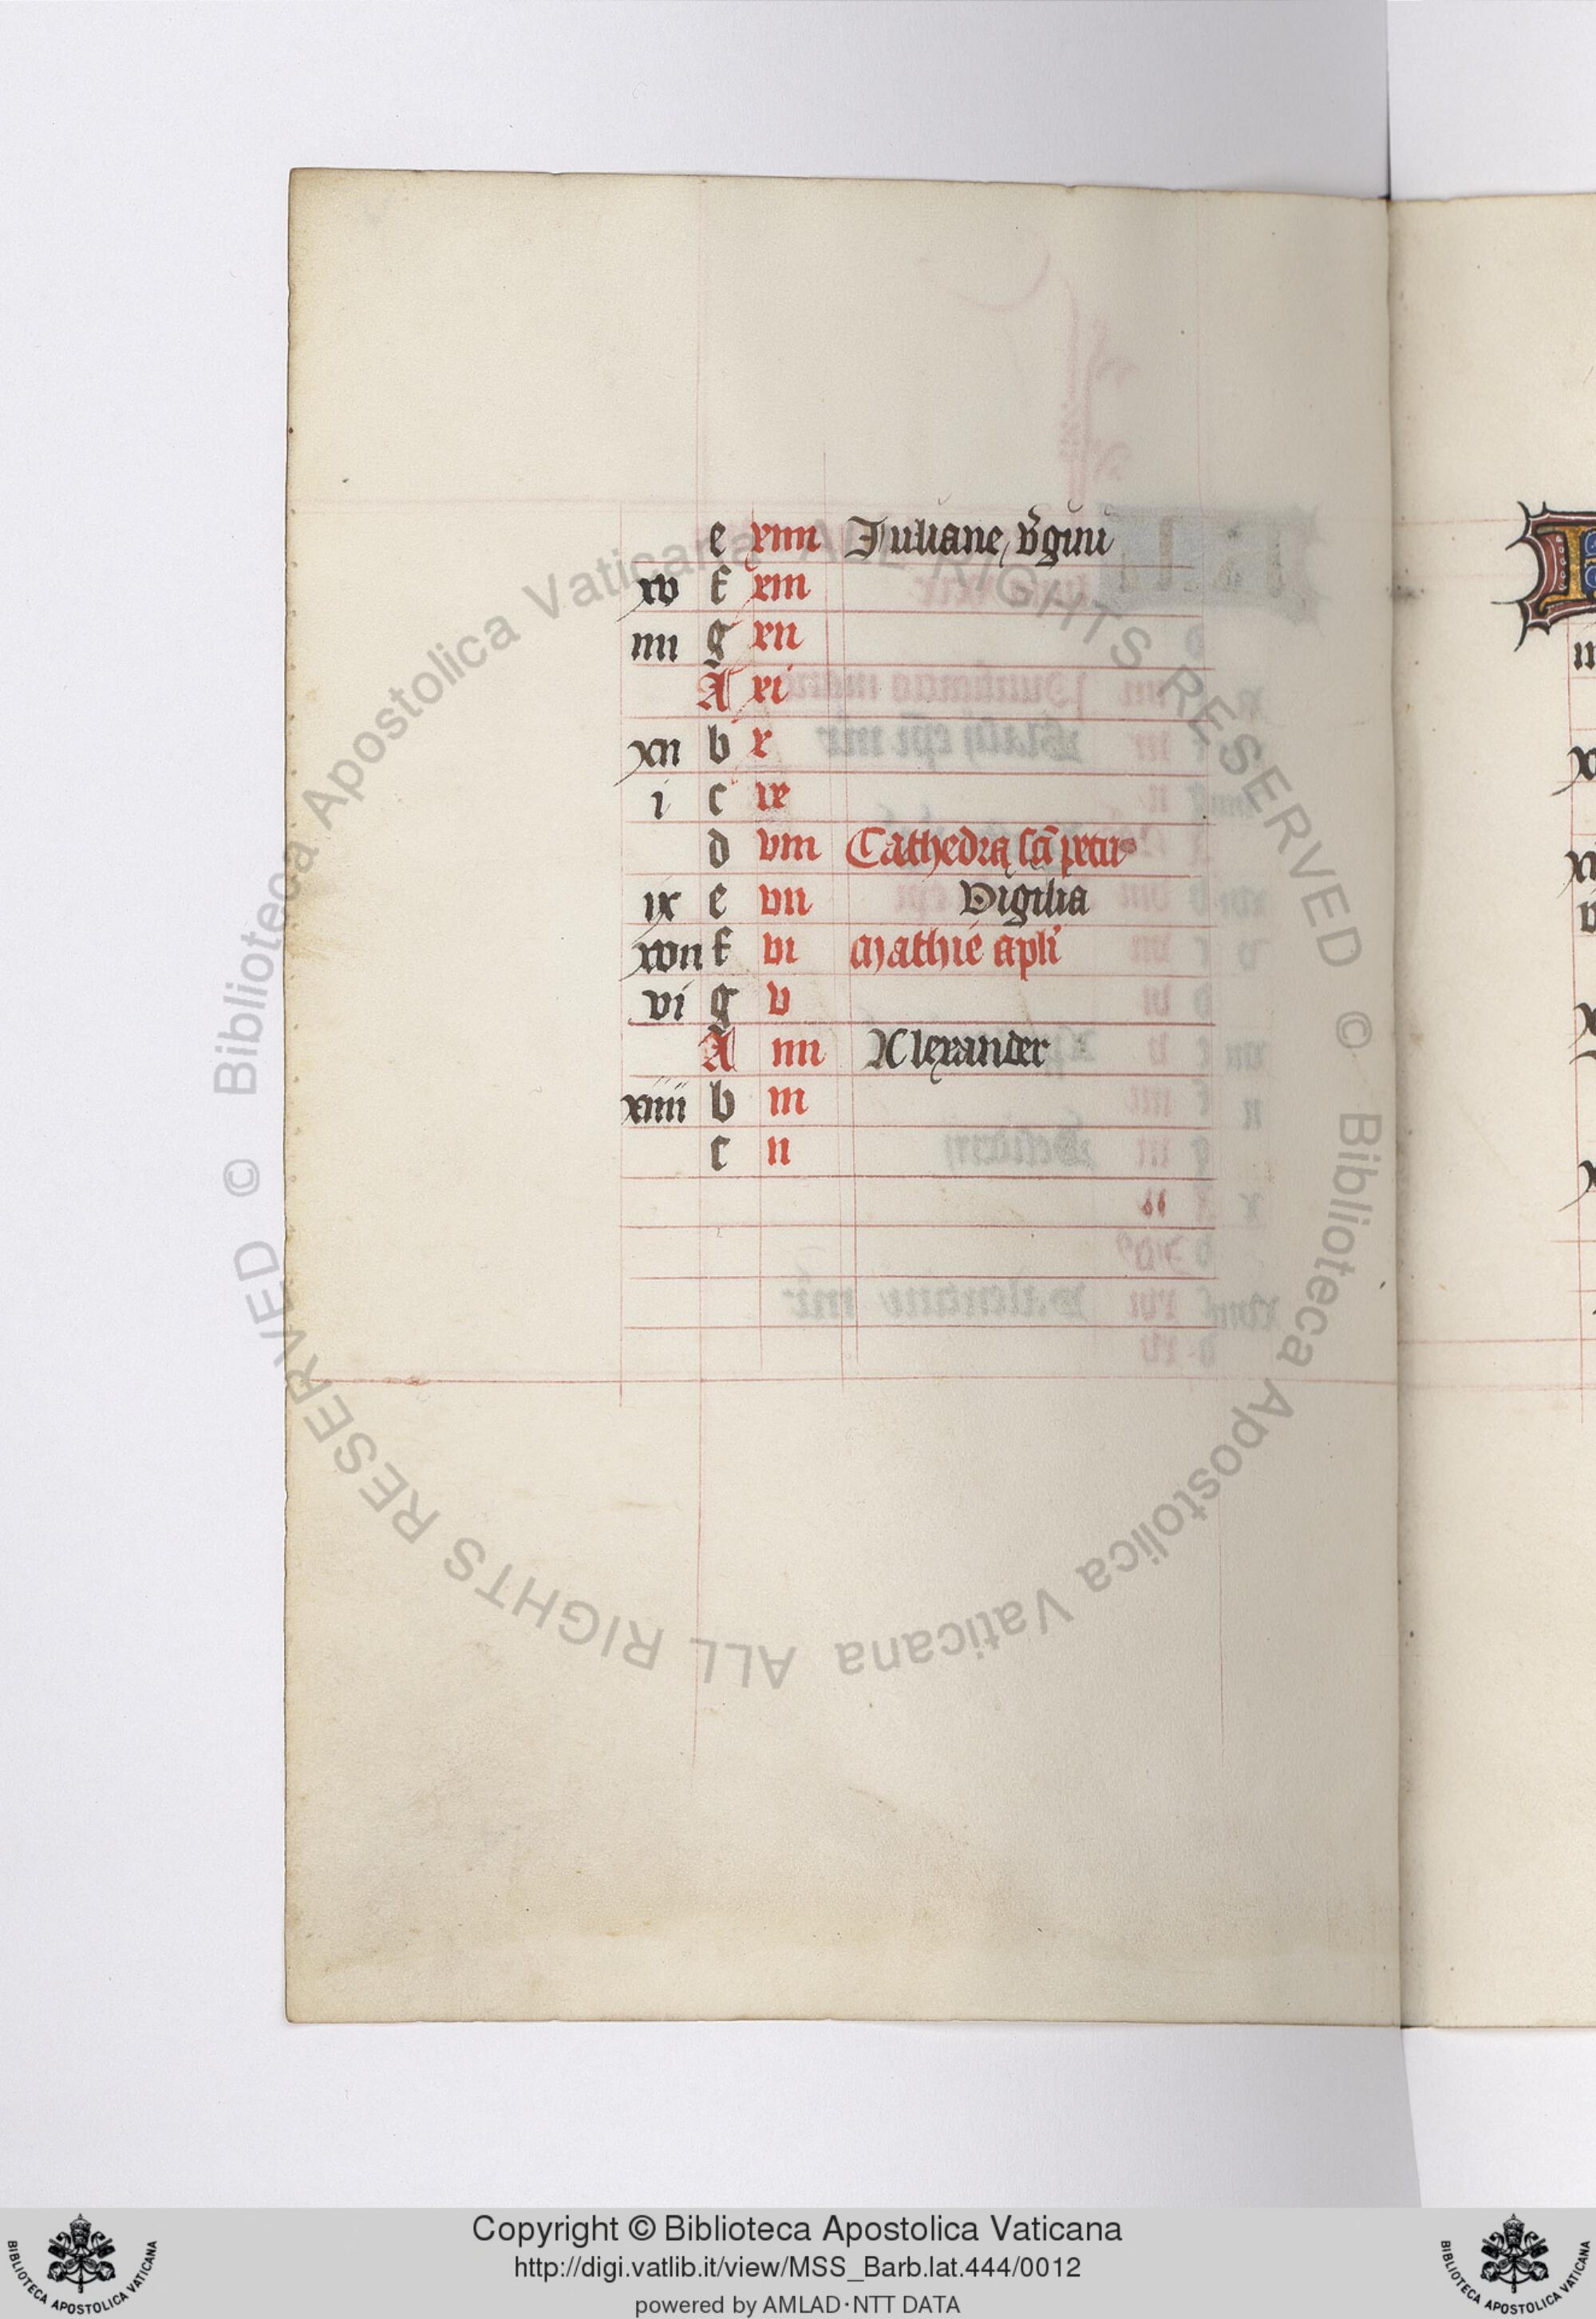 e xiiii Juliane v̄gini
xv f xiii
iiii g xii
A xi
xii b x
i c ix
d viii Cathedra sc̄i petri
ix e vii Vigilia
xvii f vi Mathie apl'i
vi g v
A iiii Alexander
xiiii b iii
c ii
© Biblioteca Apostolica Vaticana ALL RIGHTS RESERVED © Biblioteca Apostolica Vaticana ALL RIGHTS RESERVED
BIBLIOTECA APOSTOLICA VATICANA
Copyright © Biblioteca Apostolica Vaticana
http://digi.vatlib.it/view/MSS_Barb.lat.444/0012
powered by AMLAD·NTT DATA
BIBLIOTECA APOSTOLICA VATICANA